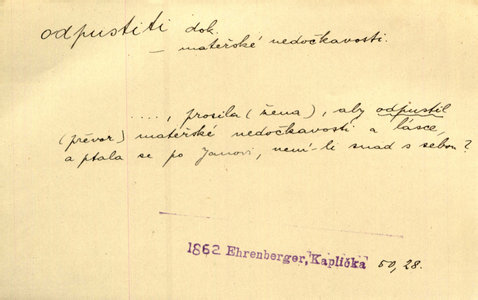 odpustiti dok.
— mateřské nedočkavosti.
...., prosila (žena), aby odpustil
(převor) mateřské nedočkavosti a lásce,
a ptala se po Janovi, není-li snad s sebou?
1862 Ehrenberger, Kaplička 50, 28.